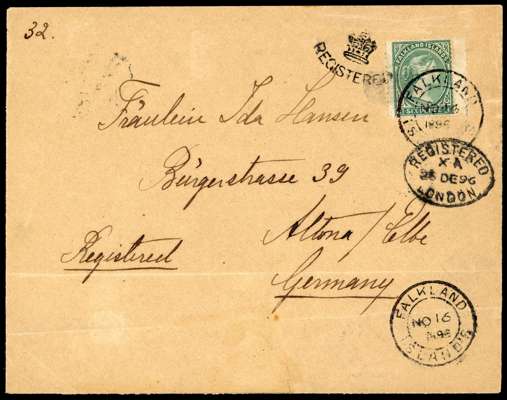 32.
REGISTERED
FALKLAND ISLANDS
FALKLAND
NO 16
1896
REGISTERED
X A
28 DE 96
LONDON
Fräulein Ida Hansen
Bürgerstrasse 39
Altona/Elbe
Registered
Germany
FALKLAND
NO 16
1896
ISLANDS